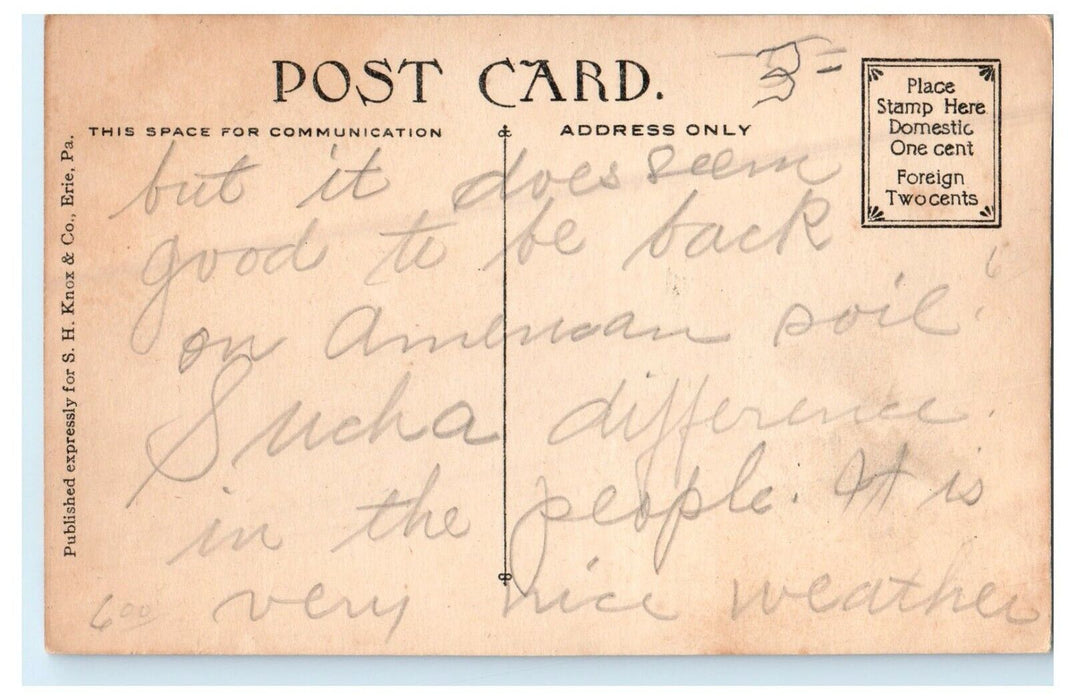 POST CARD.
THIS SPACE FOR COMMUNICATION
ADDRESS ONLY
Place
Stamp Here
Domestic
One cent
Foreign
Two cents
Published expressly for S. H. Knox & Co., Erie, Pa.
3-
but it does seem
good to be back
on American soil.
Such a difference
in the people. It is
very nice weather
6 00